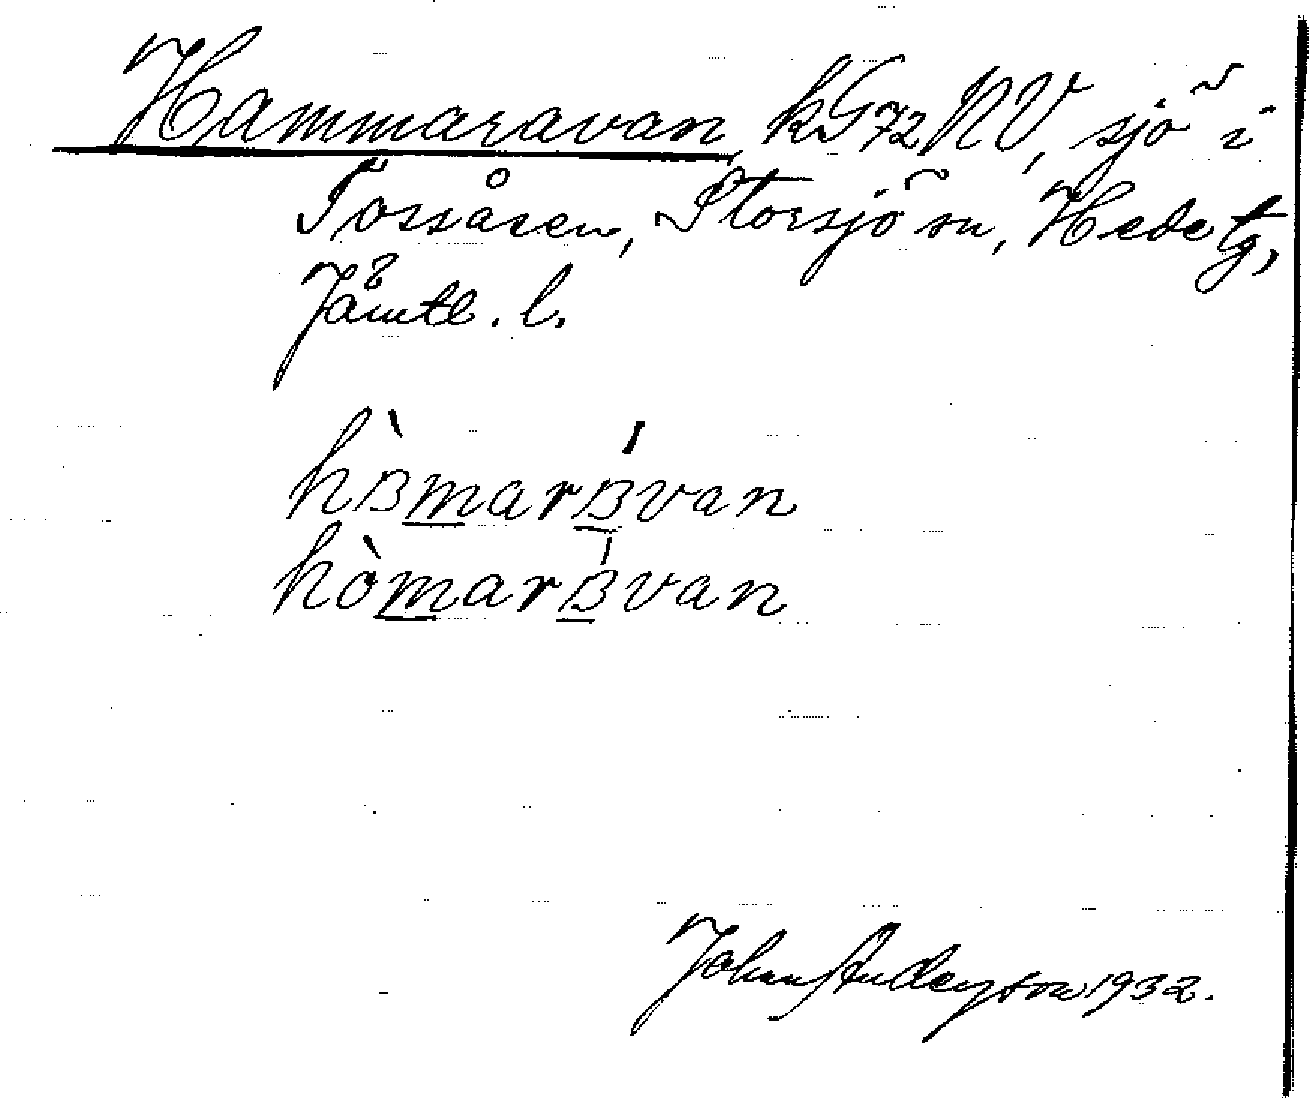 Hammaravan, kG72NV, sjö i
Tossåsen, Storsjö sn, Hede tg,
Jämtl. l.
hɞ̀marɞ́van
hòmarɞ́van
Johan Anderson 1932.